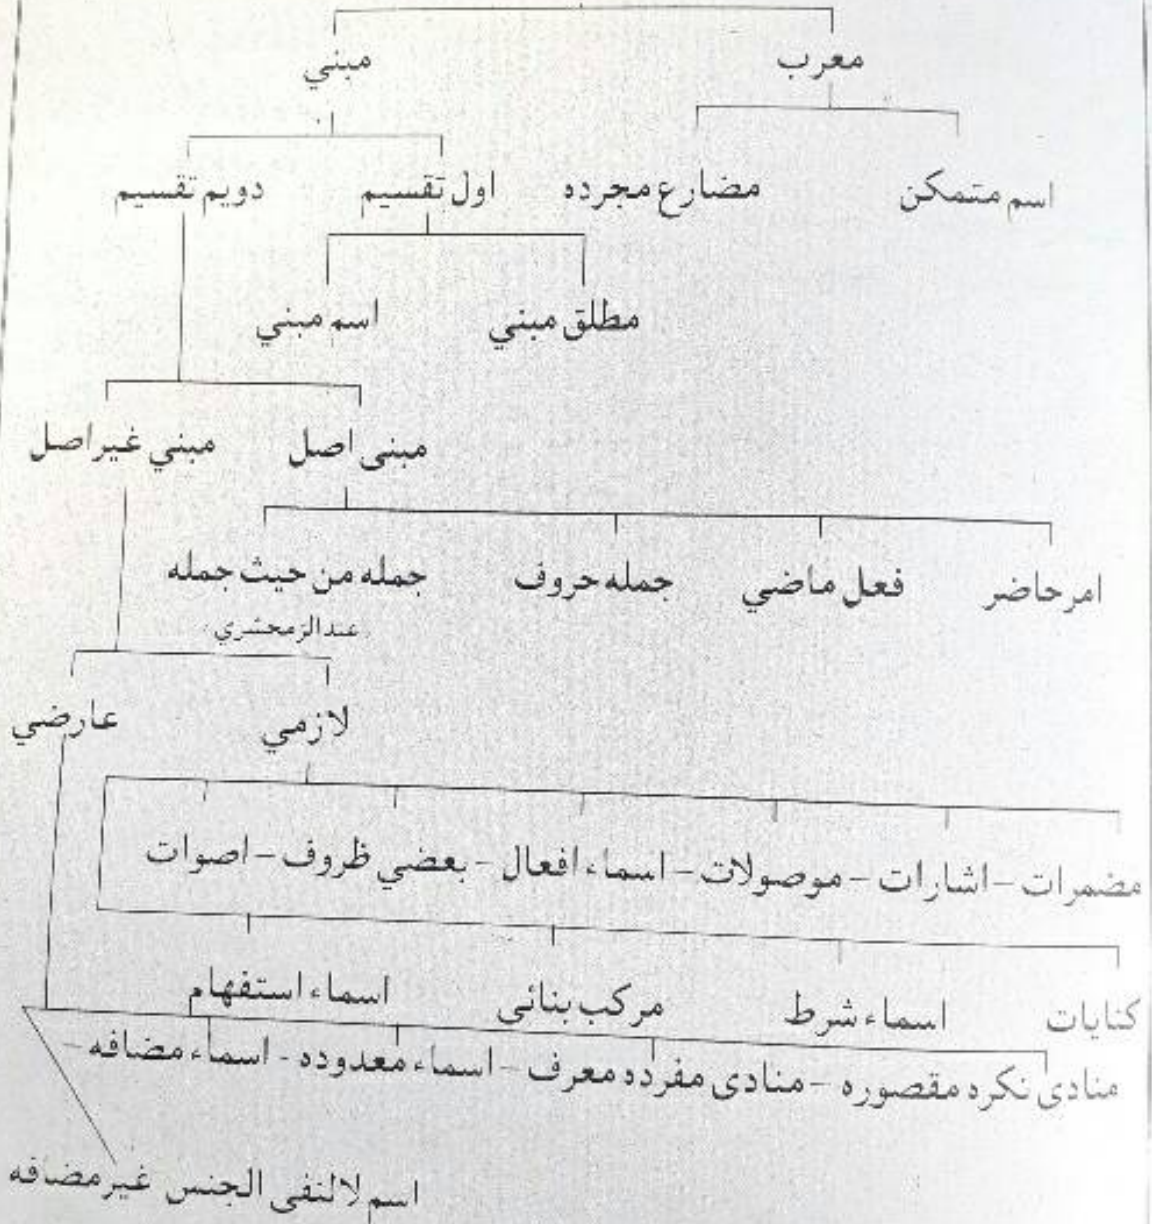 معرب مبني
اسم متمكن مضارع مجرده اول تقسيم دويم تقسيم
مطلق مبني اسم مبني
مبنى اصل مبني غير اصل
امر حاضر فعل ماضي جمله حروف جمله من حيث جمله
عند الزمحشري
لازمي عارضي
مضمرات – اشارات – موصولات – اسماء افعال – بعضي ظروف – اصوات
كنايات اسماء شرط مركب بنائى اسماء استفهام
منادى نكره مقصوره – منادى مفرده معرف – اسماء معدوده – اسماء مضافه –
اسم لا لنفى الجنس غير مضافه